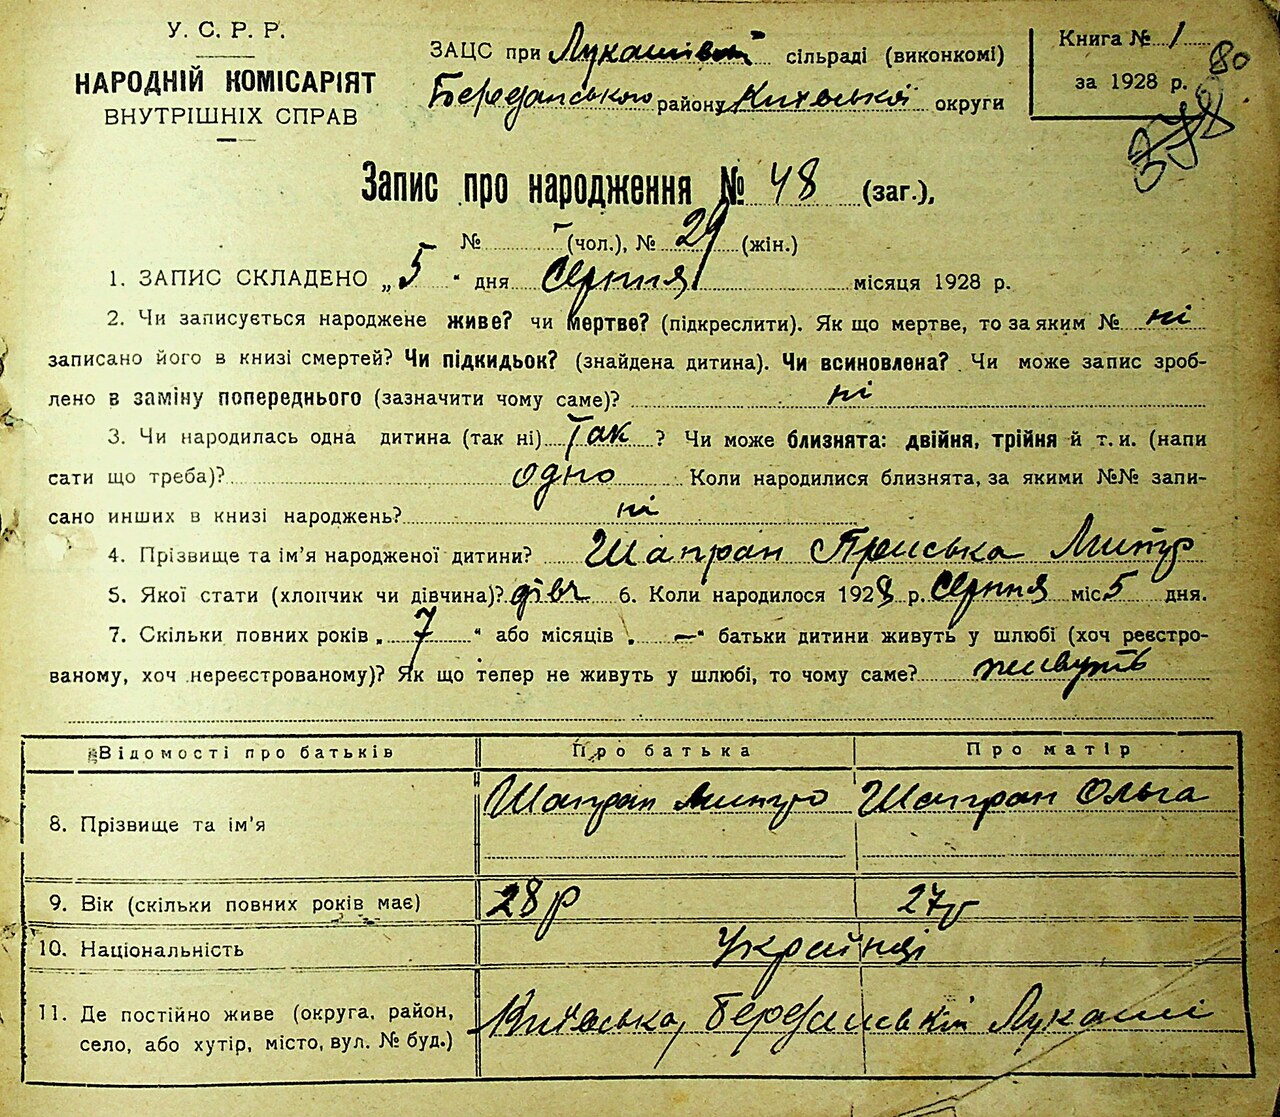 У. С. Р. Р.
НАРОДНІЙ КОМІСАРІЯТ
ВНУТРІШНІХ СПРАВ
ЗАЦС при Лукашівській сільраді (виконкомі)
Березанського району Київської округи
Книга № 1
за 1928 р.
80
378
Запис про народження № 48 (заг.),
№ — (чол.), № 29 (жін.)
1. ЗАПИС СКЛАДЕНО „5“ дня Серпня місяця 1928 р.
2. Чи записується народжене живе? чи мертве? (підкреслити). Як що мертве, то за яким № ні
записано його в книзі смертей? Чи підкидьок? (знайдена дитина). Чи всиновлена? Чи може запис зроб-
лено в заміну попереднього (зазначити чому саме)? ні
3. Чи народилась одна дитина (так ні) так ? Чи може близнята: двійня, трійня й т. и. (напи
сати що треба)? одно Коли народилися близнята, за якими №№ запи-
сано инших в книзі народжень? ні
4. Прізвище та ім'я народженої дитини? Шапран Пріська
5. Якої стати (хлопчик чи дівчина)? дівч 6. Коли народилося 1928 р. Серпня міс 5 дня.
7. Скільки повних років „7“ або місяців „—“ батьки дитини живуть у шлюбі (хоч реєстро-
ваному, хоч нереєстрованому)? Як що тепер не живуть у шлюбі, то чому саме? живуть
Відомості про батьків Про батька Про матір
8. Прізвище та ім'я Шапран Шапран Ольга
9. Вік (скільки повних років має) 28 р 27 р
10. Національність Українці
11. Де постійно живе (округа, район,
село, або хутір, місто, вул. № буд.) Київська, Березанський Лукаші